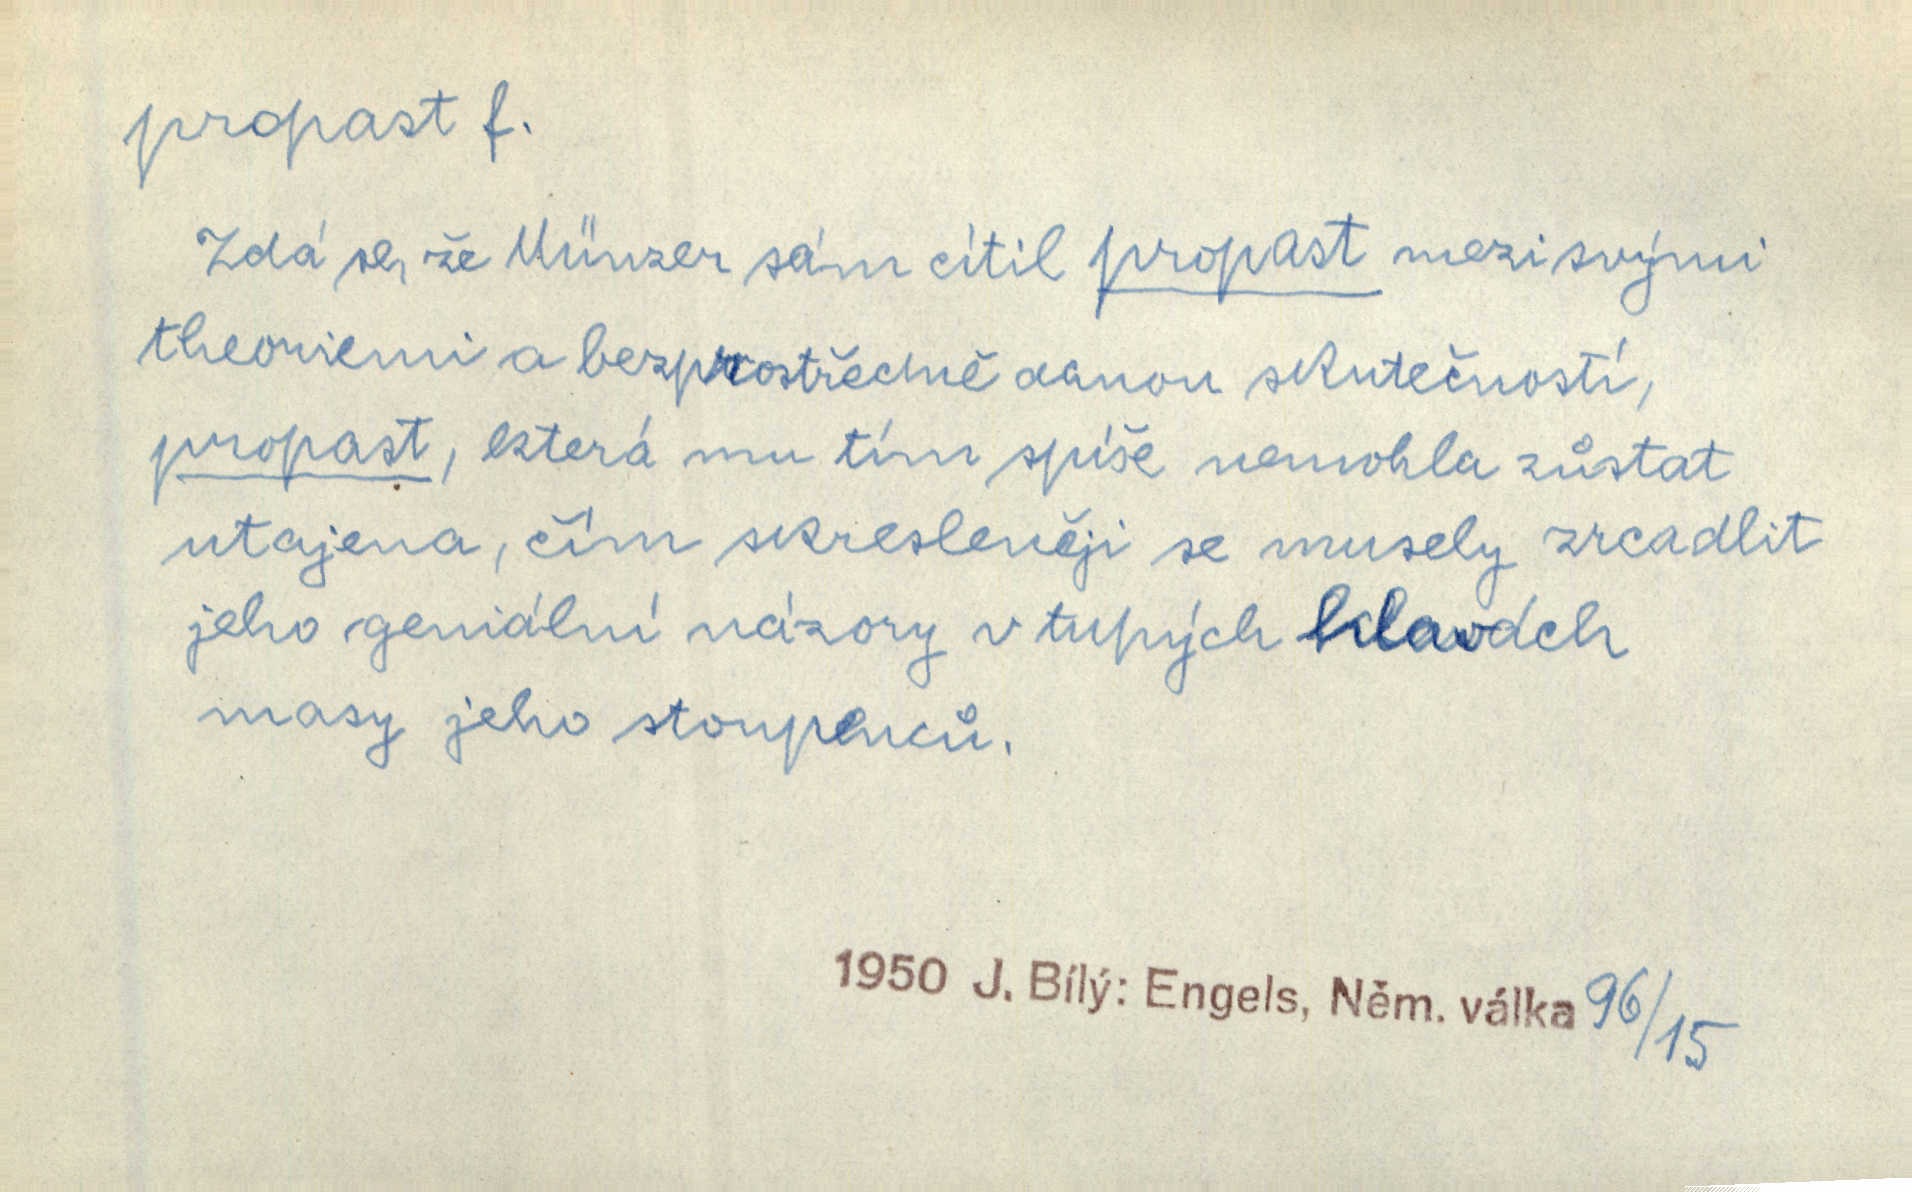 propast f.
Zdá se, že Münzer sám cítil propast mezi svými
theoriemi a bezprostředně danou skutečností,
propast, která mu tím spíše nemohla zůstat
utajena, čím skresleněji se musely zrcadlit
jeho geniální názory v tupých hlavách
masy jeho stoupenců.
1950 J. Bílý: Engels, Něm. válka 96/15